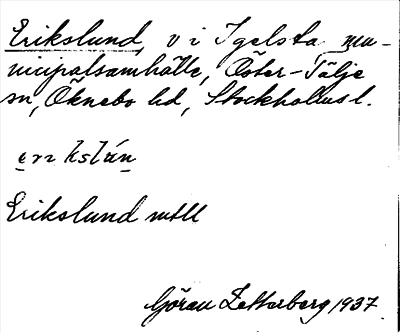 Erikslund, v i Igelsta mu-
nicipalsamhälle, Öster-Tälje
sn, Öknebo hd, Stockholms l.
Erikslund mtll
Göran Zetterberg 1937.